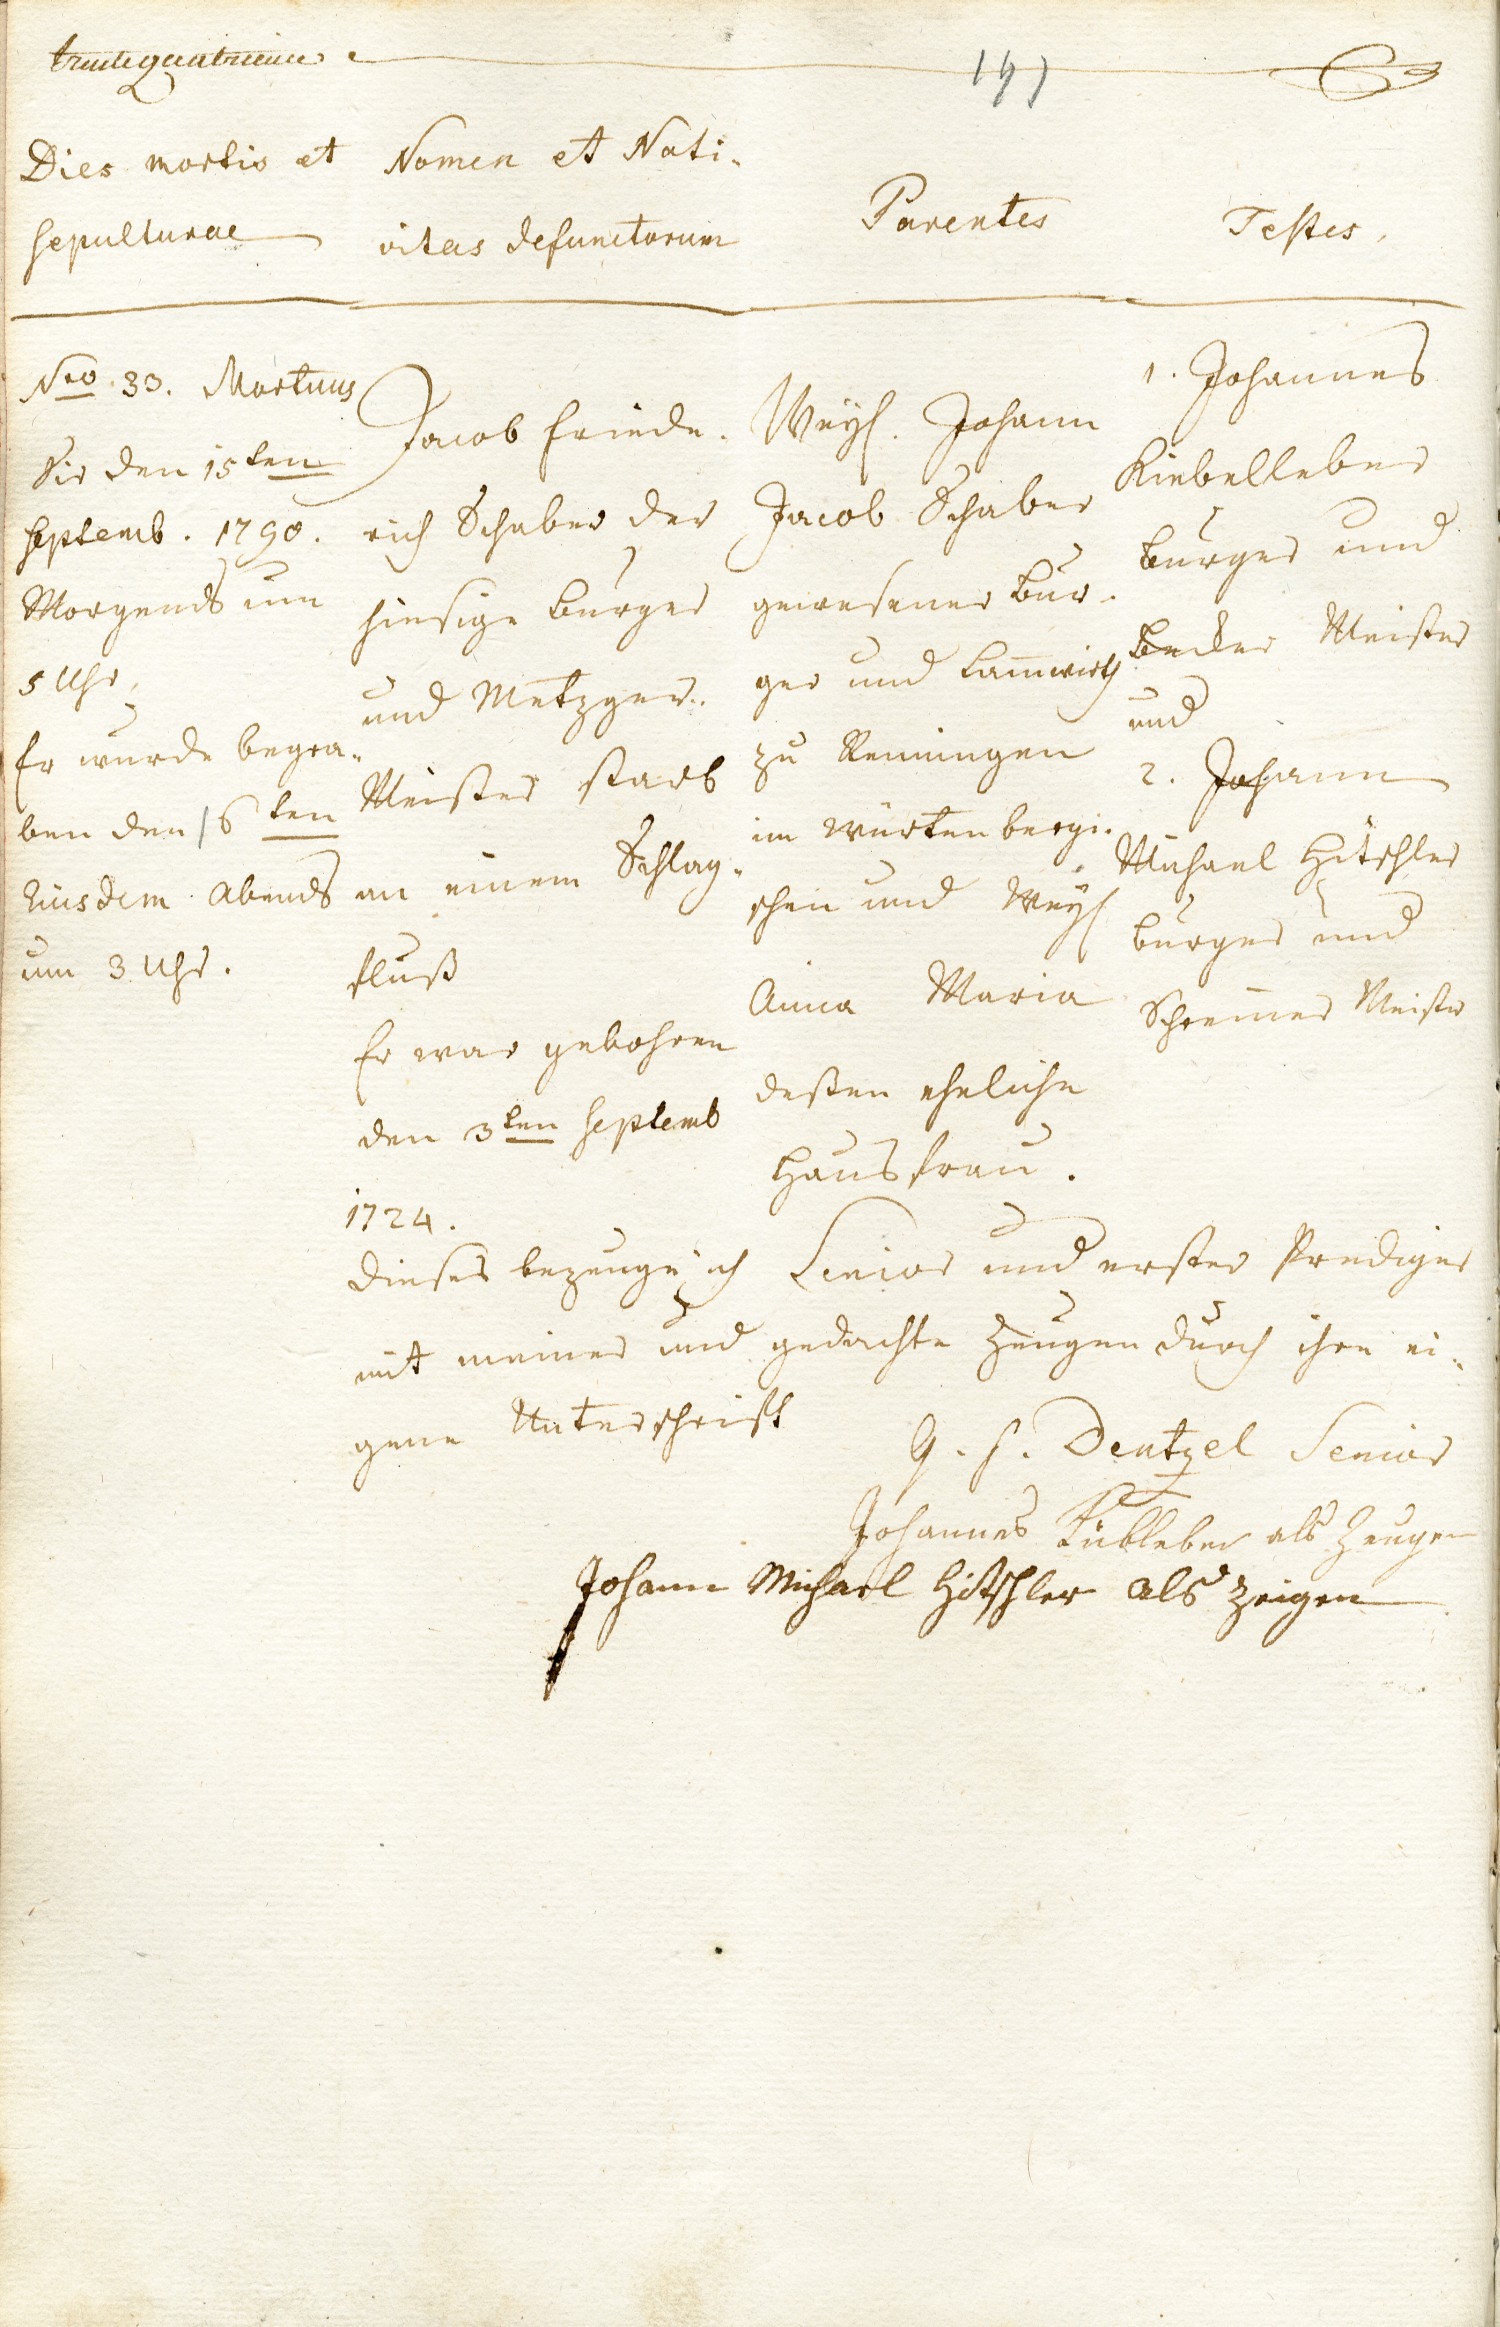 trentequatrieme
147
Dies mortis et
sepulturae
Nomen et Nati-
vitas defunctorum
Parentes
Testes.
Nro 33. Mortuus
Sis den 15ten
Septemb. 1790.
Morgends um
5 Uhr,
Er wurde begra-
ben den 16ten
Eiusdem Abends
um 3 Uhr.
Jacob Friede-
rich Schaber der
hiesige Burger
und Metzger-
Meister starb
an einem Schlag-
fluß
Er war gebohren
den 3ten Septemb
1724.
Weyl. Johann
Jacob Schaber
gewesener Bur-
ger und Lam̄wirth
zu Renningen
im Würtenbergi-
schen und Weyl
Anna Maria
deßen eheliche
Hausfrau.
1. Johannes
Kiebelleber
Burger und
Becker Meister
und
2. Johann
Michael Hitschler
Burger und
Schreiner Meister
Dieses bezeuge ich Senior und erster Prediger
mit meiner und gedachte Zeugen durch ihre ei-
gene Unterschrift
G. F. Dentzel Senior
Johannes Kübleber als Zeugen
Johann Michael Hitschler als Zeigen